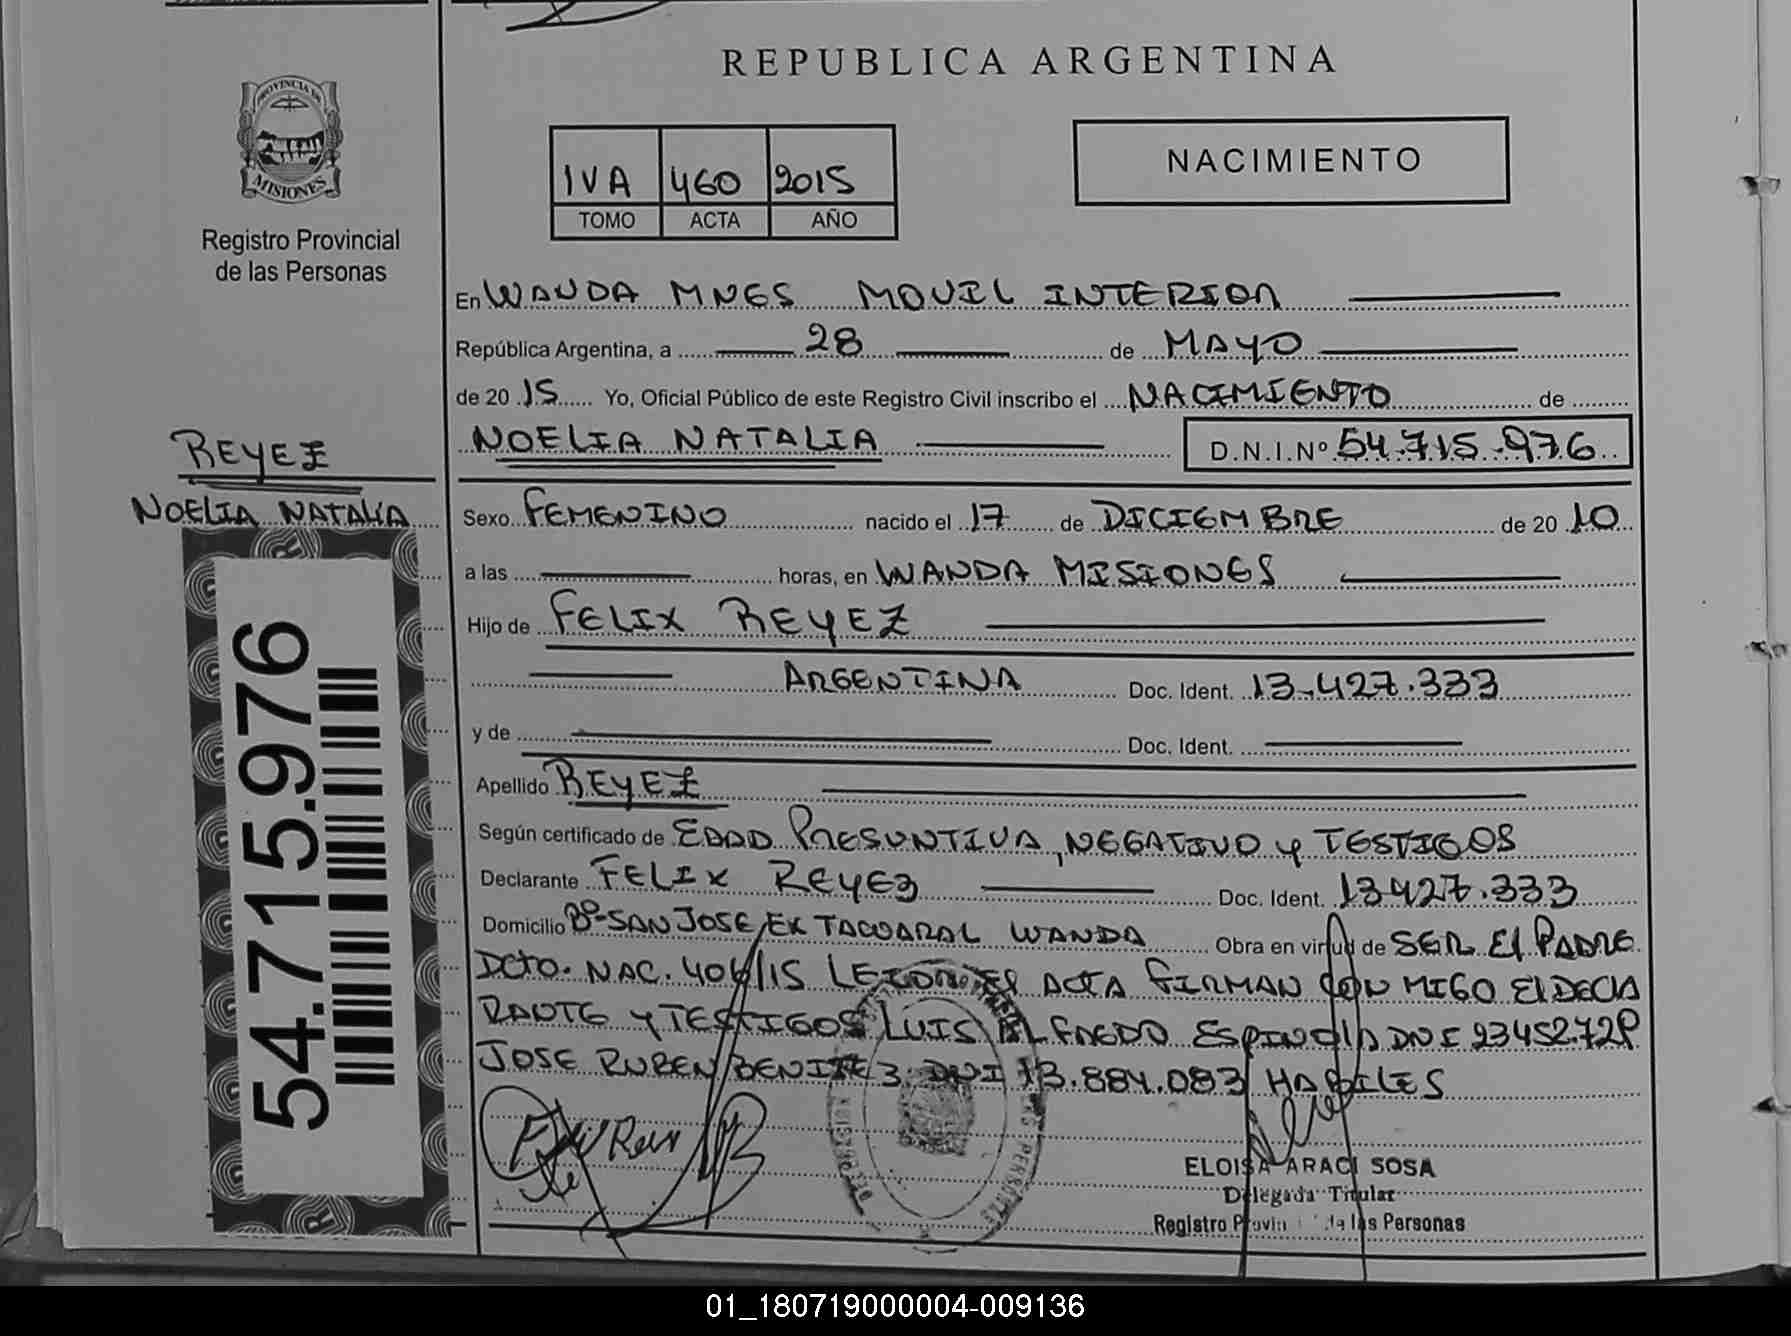 REPUBLICA ARGENTINA
PROVINCIA DE
MISIONES
Registro Provincial
de las Personas
IVA 460 2015
TOMO ACTA AÑO
NACIMIENTO
En WANDA MNES MOVIL INTERIOR
República Argentina, a 28 de MAYO
de 20 15 Yo, Oficial Público de este Registro Civil inscribo el NACIMIENTO de
NOELIA NATALIA D.N.I.Nº 54.715.976
REYEZ
NOELIA NATALIA
54.715.976
Sexo FEMENINO nacido el 17 de DICIEMBRE de 20 10
a las horas, en WANDA MISIONES
Hijo de FELIX REYEZ
ARGENTINA Doc. Ident. 13.427.333
y de Doc. Ident.
Apellido REYEZ
Según certificado de EDAD PRESUNTIVA, NEGATIVO y TESTIGOS
Declarante FELIX REYEZ Doc. Ident. 13427.333
Domicilio Bº SAN JOSE EX TACUARAL WANDA Obra en virtud de SER El PADRE
DCTO. NAC. 406/15 ACTA FIRMAN CON MIGO El DECLA
RANTE y TESTIGOS LUIS ALFREDO ESPINOLA DNI
JOSE RUBEN BENITEZ DNI 13.884.083 HABILES
ELOISA ARACI SOSA
Delegada Titular
Registro de las Personas
01_180719000004-009136